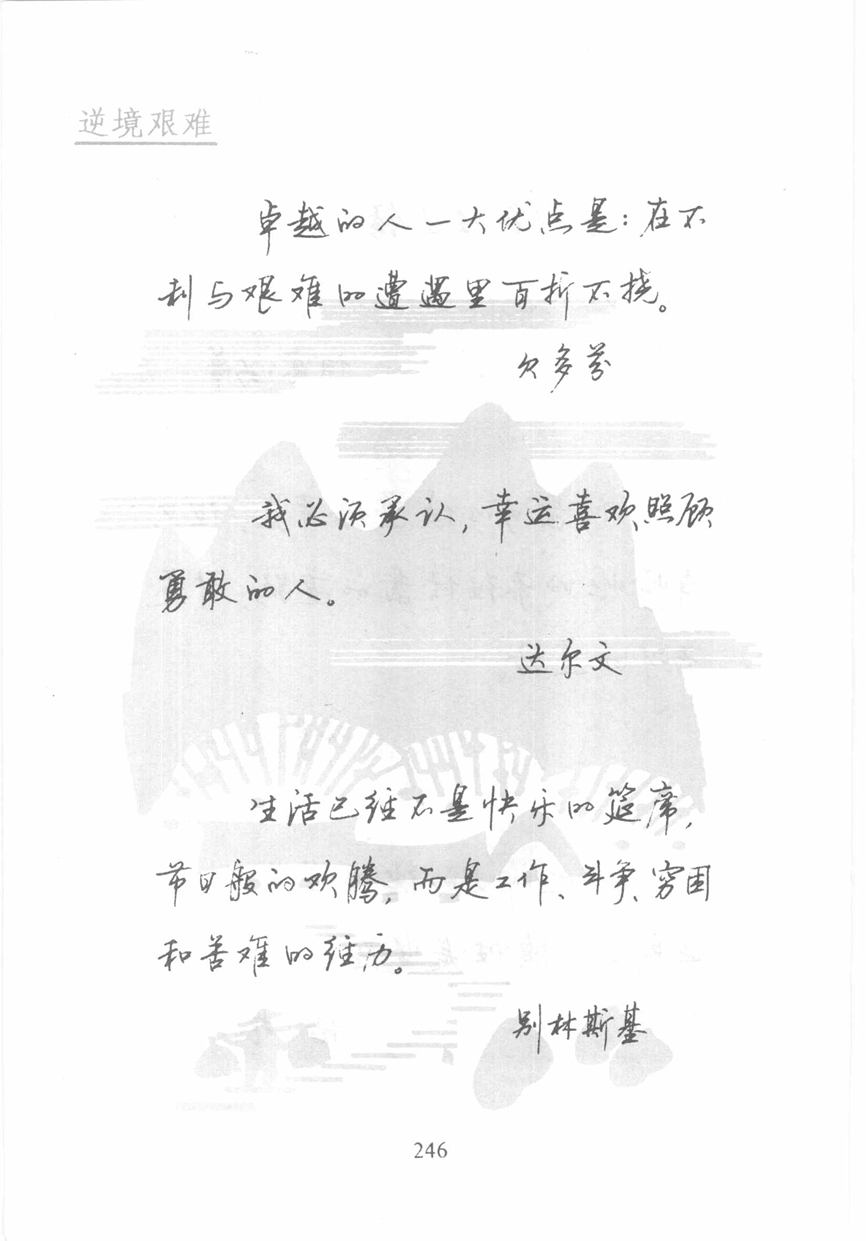 逆境艰难
卓越的人一大优点是：在不
利与艰难的遭遇里百折不挠。
贝多芬
我必须承认，幸运喜欢照顾
勇敢的人。
达尔文
生活已经不是快乐的筵席，
节日般的欢腾，而是工作、斗争、穷困
和苦难的经历。
别林斯基
246